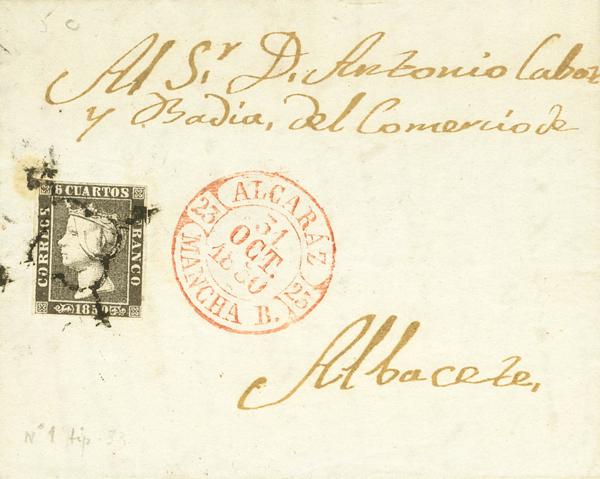 5 c
Al S.r D. Antonio Cabot
y Badia, del Comercio de
6 CUARTOS
CORREOS
FRANCO
1850
ALCARÁZ
23
31
OCT.
1850
23
MANCHA B.
Albacete.
Nº 1 tip.